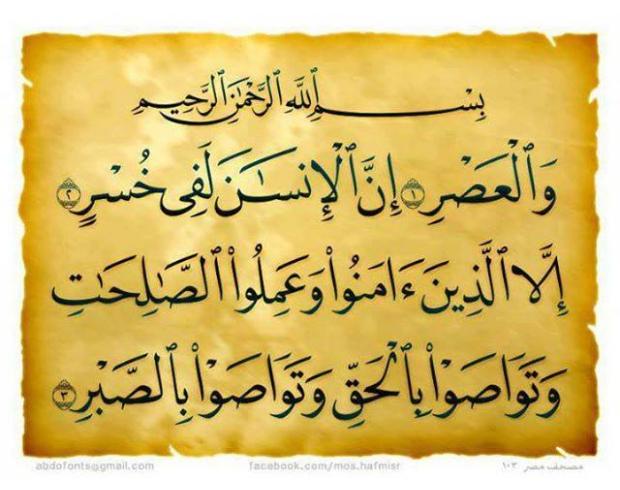 بِسْمِ ٱللَّهِ ٱلرَّحْمَٰنِ ٱلرَّحِيمِ
وَٱلْعَصْرِ ١ إِنَّ ٱلْإِنسَٰنَ لَفِى خُسْرٍ ٢
إِلَّا ٱلَّذِينَ ءَامَنُوا۟ وَعَمِلُوا۟ ٱلصَّٰلِحَٰتِ
وَتَوَاصَوْا۟ بِٱلْحَقِّ وَتَوَاصَوْا۟ بِٱلصَّبْرِ ٣
abdofonts@gmail.com facebook.com/mos.hafmisr مصحف مصر ١٠٣